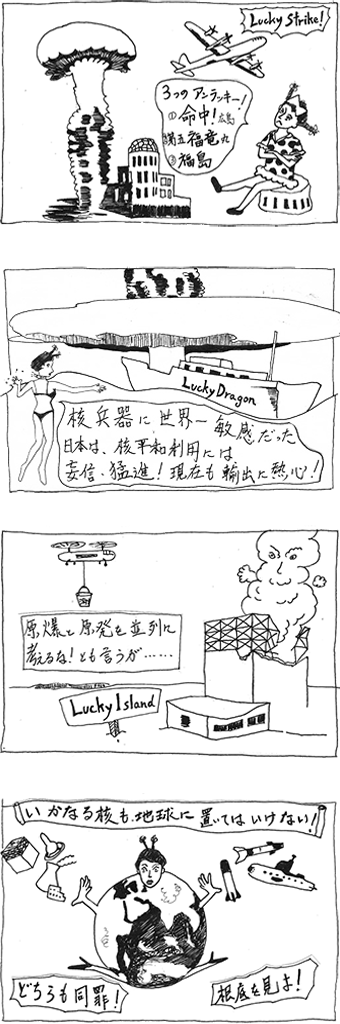 Lucky Strike!
3つのアンラッキー!
① 命中! 広島
福竜丸
③ 福島
Lucky Dragon
核兵器に世界一敏感だった
日本は、核平和利用には
妄信、猛進!現在も輸出に熱心!
原爆と原発を並列に
考えるな!とも言うが……
Lucky Island
いかなる核も、地球に置いてはいけない!
どちらも同罪!
根底を見よ!